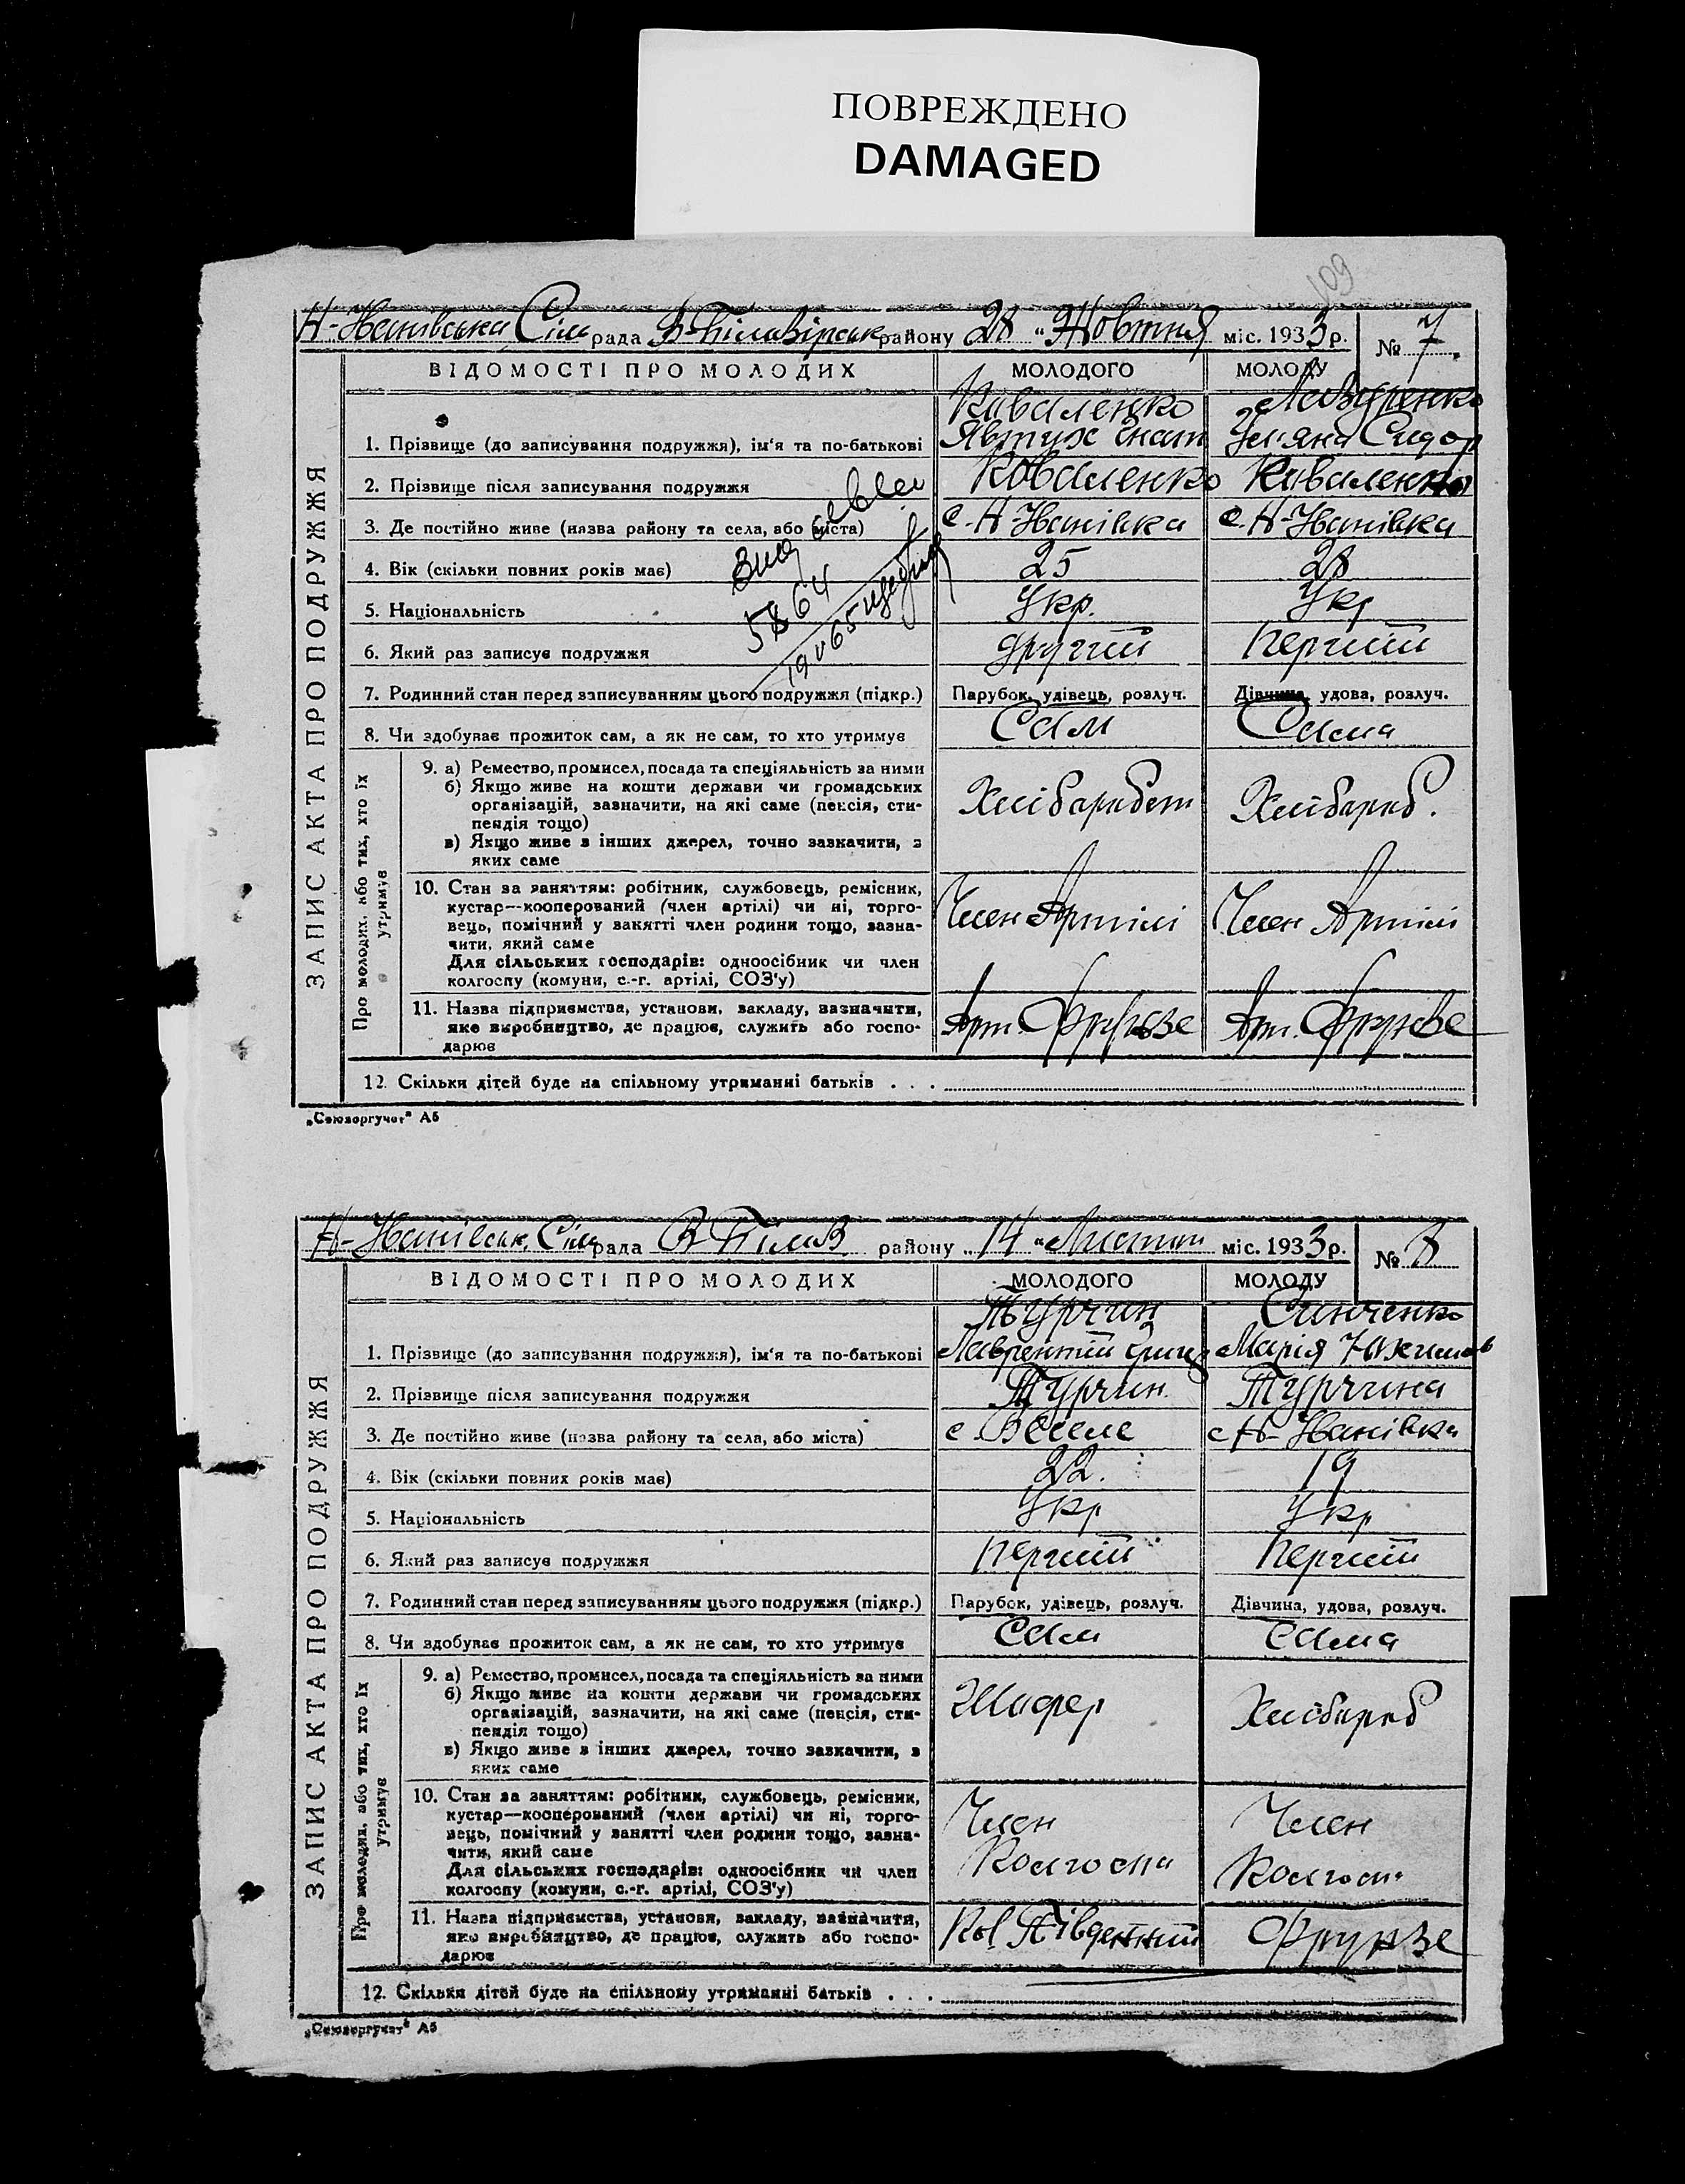 ПОВРЕЖДЕНО
DAMAGED
109
Н-Іванівська Сіль рада В-Білозірськ району 28 "Жовтня міс. 1933 р. № 7.
ВІДОМОСТІ ПРО МОЛОДИХ МОЛОДОГО МОЛОДУ
ЗАПИС АКТА ПРО ПОДРУЖЖЯ
Коваленко
1. Прізвище (до записування подружжя), ім'я та по-батькові Явтух Гнат Ул'яна Сидор
2. Прізвище після записування подружжя Коваленко Коваленко
3. Де постійно живе (назва району та села, або міста) с. Н-Іванівка с. Н-Іванівка
4. Вік (скільки повних років має) 25 28
5. Національність Укр. Укр
6. Який раз записує подружжя другий перший
7. Родинний стан перед записуванням цього подружжя (підкр.) Парубок, удівець, розлуч. Дівчина, удова, розлуч.
8. Чи здобуває прожиток сам, а як не сам, то хто утримує Сам Сама
Про молодих, або тих, хто їх утримує
9. а) Ремество, промисел, посада та спеціяльність за ними
б) Якщо живе на кошти держави чи громадських
організацій, зазначити, на які саме (пенсія, сти-
пендія тощо)
Хлібаробот Хлібароб.
в) Якщо живе з інших джерел, точно зазначити, з
яких саме
10. Стан за заняттям: робітник, службовець, ремісник,
кустар—кооперований (член артілі) чи ні, торго-
вець, помічний у занятті член родини тощо, зазна-
чити, який саме
Член Артілі Член Артілі
Для сільських господарів: одноосібник чи член
колгоспу (комуни, с.-г. артілі, СОЗ'у)
11. Назва підприємства, установи, закладу, зазначити,
яке виробництво, де працює, служить або госпо-
дарює
Арт. Фрунзе Арт. Фрунзе
12. Скільки дітей буде на спільному утриманні батьків . . .
„Союзоргучет" А5
Н-Іванівськ. Сіль рада В Білоз району „ 14 " Листоп міс. 1933 р. № 8
ВІДОМОСТІ ПРО МОЛОДИХ МОЛОДОГО МОЛОДУ
ЗАПИС АКТА ПРО ПОДРУЖЖЯ
Турчин
1. Прізвище (до записування подружжя), ім'я та по-батькові Лаврентій Григ Марія
2. Прізвище після записування подружжя Турчин Турчина
3. Де постійно живе (назва району та села, або міста) с Веселе с Н-Іванівка
4. Вік (скільки повних років має) 22. 19
5. Національність Укр Укр
6. Який раз записує подружжя перший перший
7. Родинний стан перед записуванням цього подружжя (підкр.) Парубок, удівець, розлуч. Дівчина, удова, розлуч.
8. Чи здобуває прожиток сам, а як не сам, то хто утримує Сам Сама
Про молодих, або тих, хто їх утримує
9. а) Ремество, промисел, посада та спеціяльність за ними
б) Якщо живе на кошти держави чи громадських
організацій, зазначити, на які саме (пенсія, сти-
пендія тощо)
Шофер Хлібароб
в) Якщо живе з інших джерел, точно зазначити, з
яких саме
10. Стан за заняттям: робітник, службовець, ремісник,
кустар—кооперований (член артілі) чи ні, торго-
вець, помічний у занятті член родини тощо, зазна-
чити, який саме
Член Член
Для сільських господарів: одноосібник чи член
колгоспу (комуни, с.-г. артілі, СОЗ'у)
Колгоспа Колгосп
11. Назва підприємства, установи, закладу, зазначити,
яке виробництво, де працює, служить або госпо-
дарює
Кол Південний Фрунзе
12. Скільки дітей буде на спільному утриманні батьків . . .
„Союзоргучет" А5